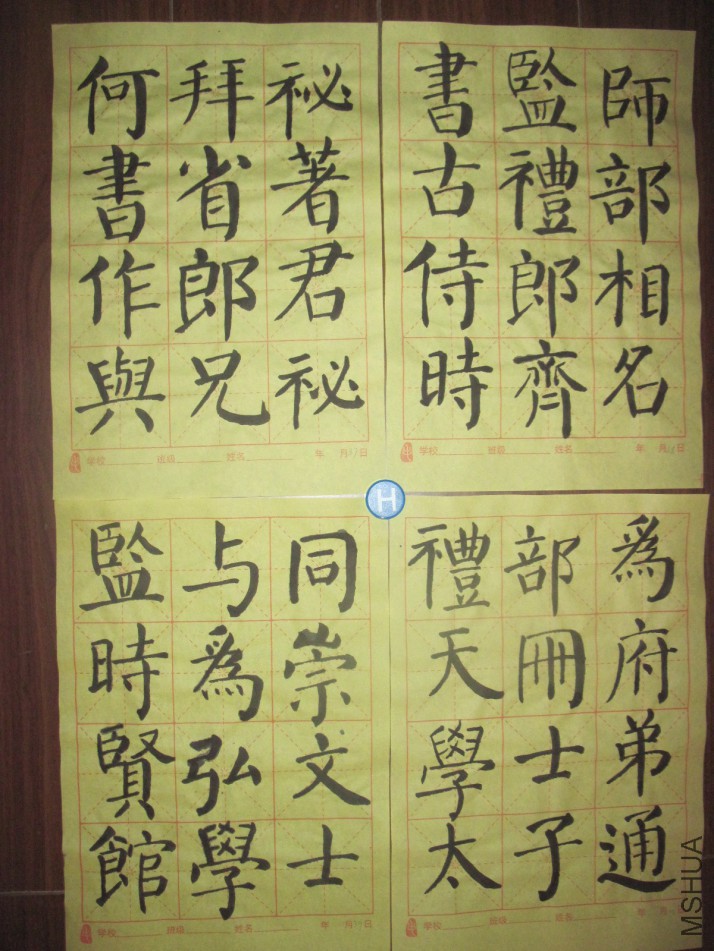 何拜祕
書省著
作郎君
與兄祕
学校 班级 姓名 年 月 日
書監師
古禮部
侍郎相
時齊名
学校 班级 姓名 年 月 日
H
監与同
時爲崇
賢弘文
館學士
学校 班级 姓名 年 月 日
禮部爲
天冊府
學士弟
太子通
学校 班级 姓名 年 月 日
MSHUA